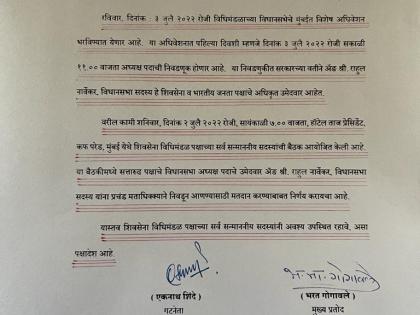 रविवार, दिनांक : ३ जुलै २०२२ रोजी विधिमंडळाच्या विधानसभेचे मुंबईत विशेष अधिवेशन
भरविण्यात येणार आहे. या अधिवेशनात पहिल्या दिवशी म्हणजे दिनांक ३ जुलै २०२२ रोजी सकाळी
११.०० वाजता अध्यक्ष पदाची निवडणूक होणार आहे. या निवडणुकीत सरकारच्या वतीने ॲड श्री. राहुल
नार्वेकर, विधानसभा सदस्य हे शिवसेना व भारतीय जनता पक्षाचे अधिकृत उमेदवार आहेत.
वरील कामी शनिवार, दिनांक २ जुलै २०२२ रोजी, सायंकाळी ७.०० वाजता, हॉटेल ताज प्रेसिडेंट,
कफ परेड, मुंबई येथे शिवसेना विधिमंडळ पक्षाच्या सर्व सन्माननीय सदस्यांची बैठक आयोजित केली आहे.
या बैठकीमध्ये सत्तारुढ पक्षाचे विधानसभा अध्यक्ष पदाचे उमेदवार ॲड श्री. राहुल नार्वेकर, विधानसभा
सदस्य यांना प्रचंड मताधिक्याने निवडून आणण्यासाठी मतदान करण्याबाबत निर्णय करायचा आहे.
यास्तव शिवसेना विधिमंडळ पक्षाच्या सर्व सन्माननीय सदस्यांनी अवश्य उपस्थित रहावे, असा
पक्षादेश आहे.
भ. मा. गोगावले
( एकनाथ शिंदे )
( भरत गोगावले )
गटनेता
मुख्य प्रतोद